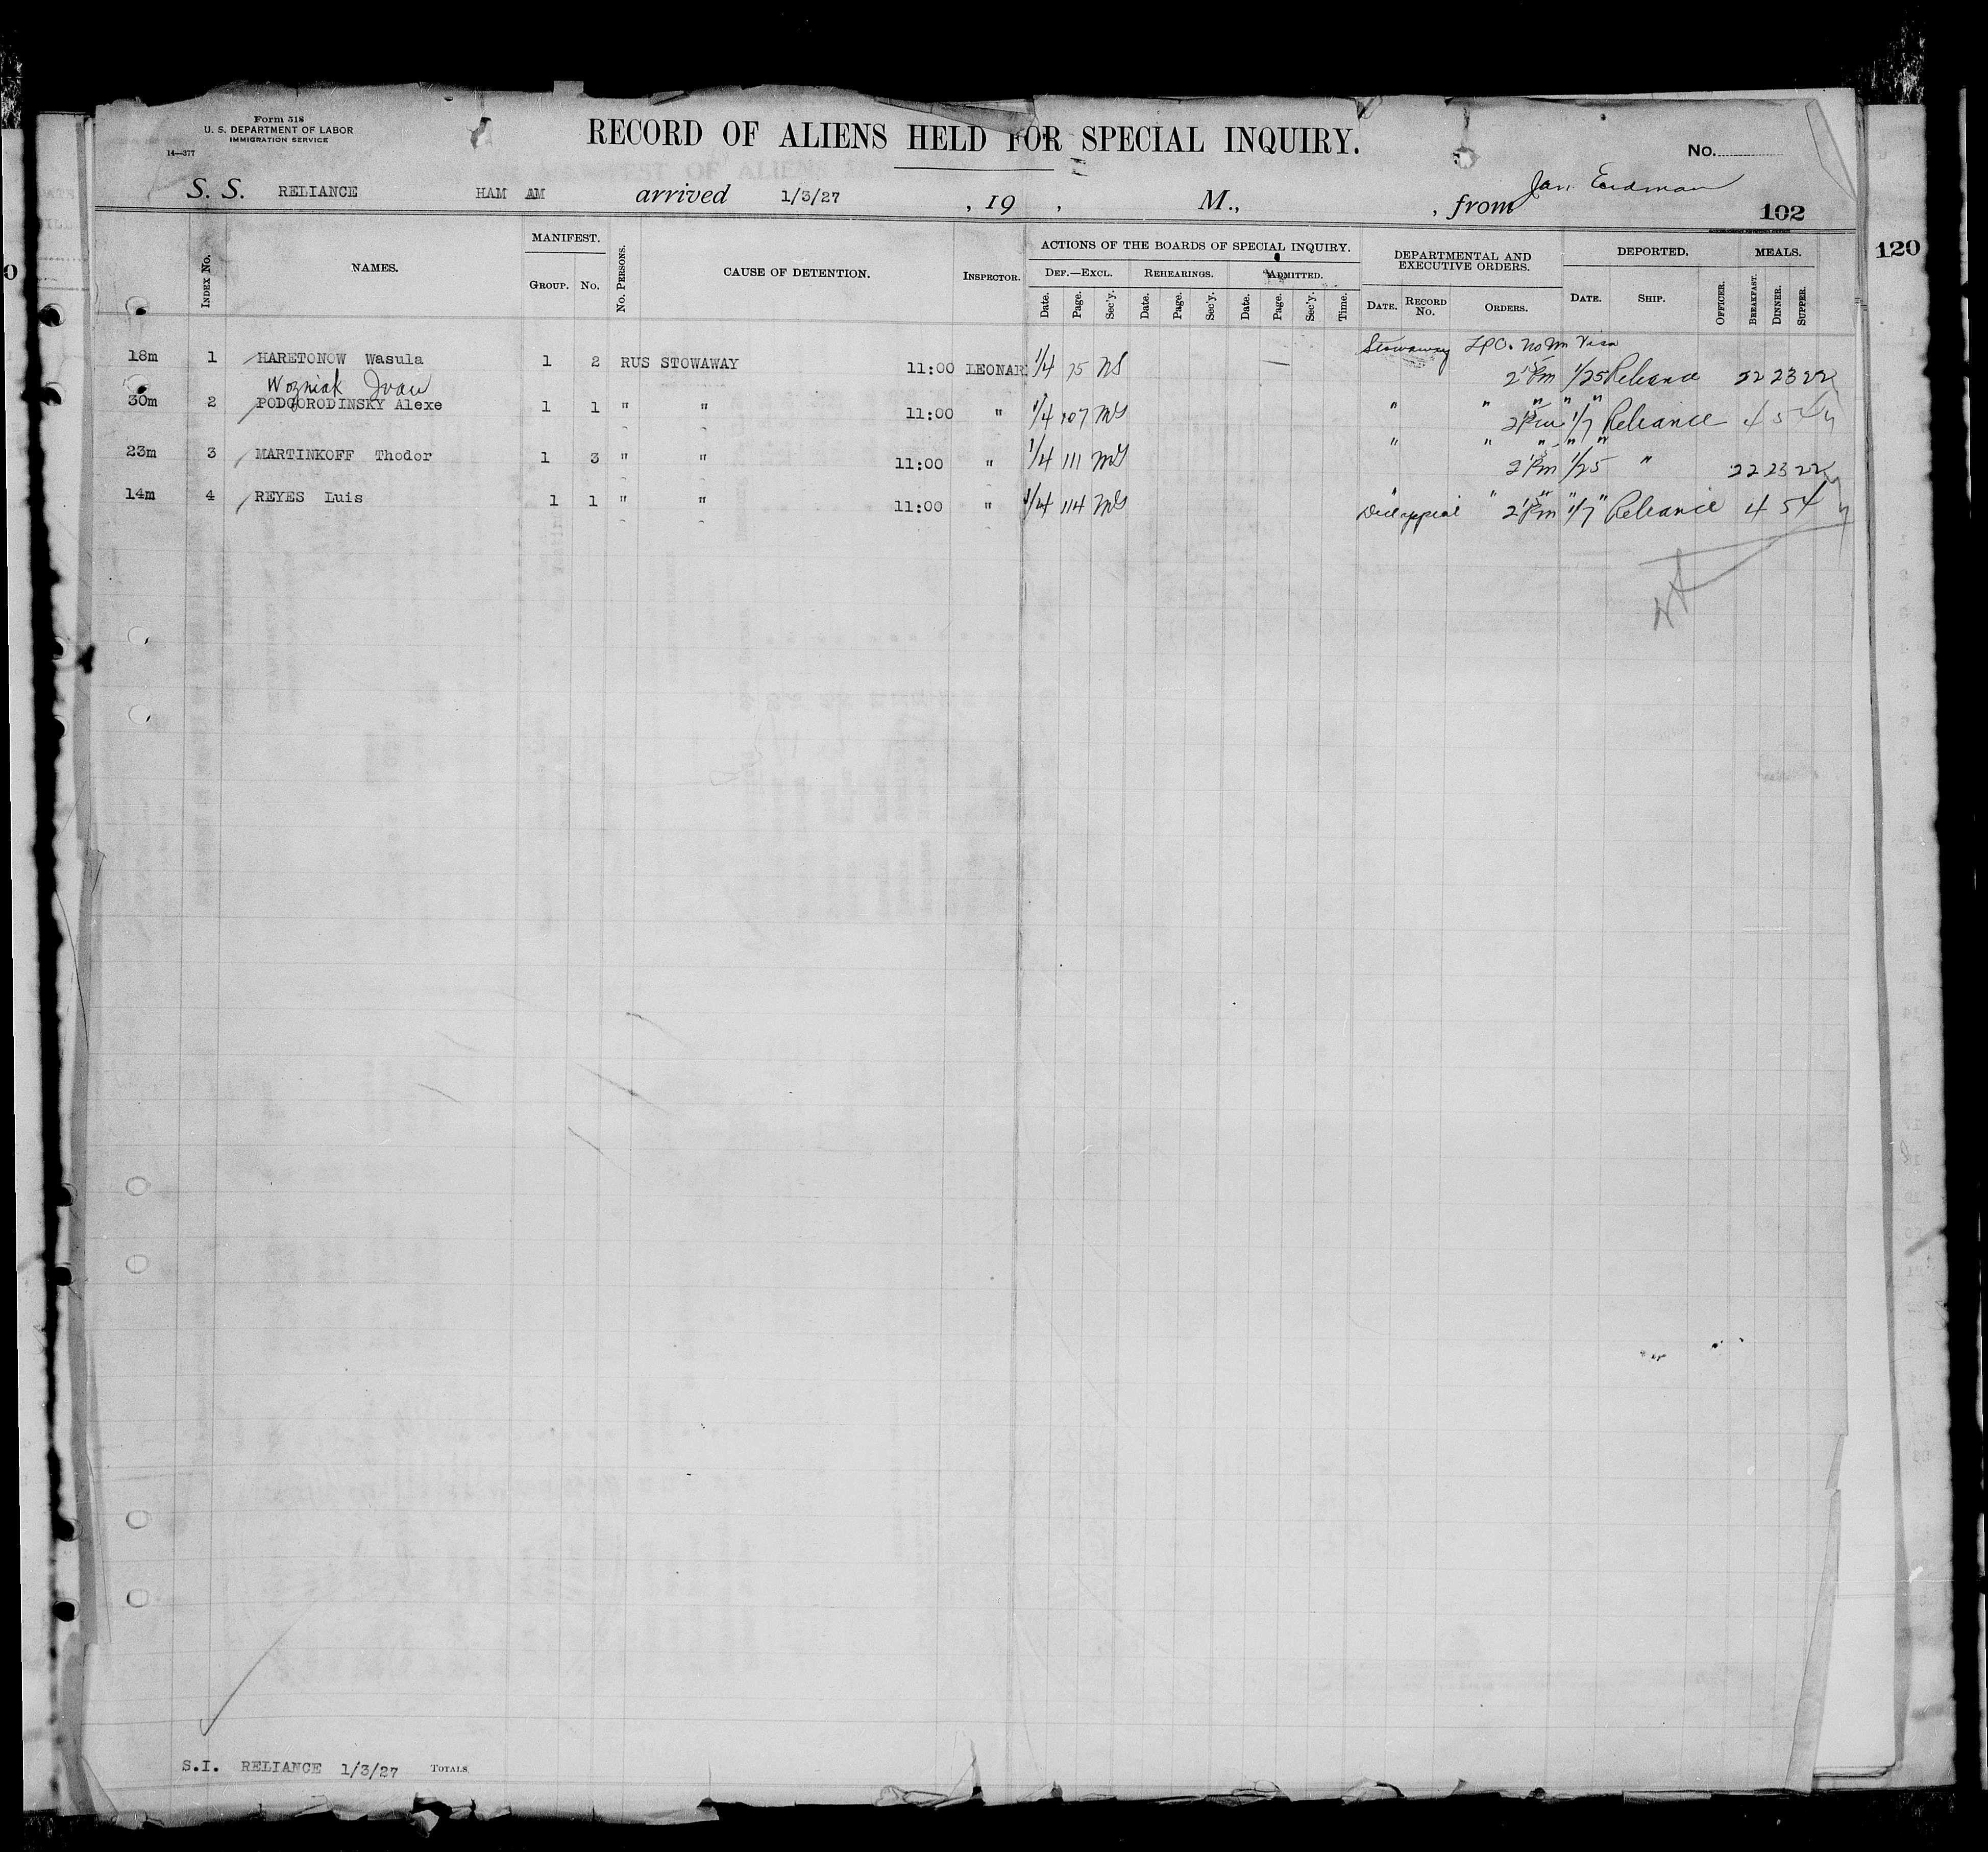 Form 518
U. S. DEPARTMENT OF LABOR
IMMIGRATION SERVICE
14—377
RECORD OF ALIENS HELD FOR SPECIAL INQUIRY.
No.
S. S. RELIANCE HAM AM arrived 1/3/27 , 19 , M., , from Jan. Erdman
102
120
INDEX No. NAMES. MANIFEST. GROUP. No. No. PERSONS. CAUSE OF DETENTION. INSPECTOR.
ACTIONS OF THE BOARDS OF SPECIAL INQUIRY. DEF.—EXCL. Date. Page. Sec'y. REHEARINGS. Date. Page. Sec'y. ADMITTED. Date. Page. Sec'y. Time.
DEPARTMENTAL AND EXECUTIVE ORDERS. DATE. RECORD No. ORDERS.
DEPORTED. DATE. SHIP. OFFICER. MEALS. BREAKFAST. DINNER. SUPPER.
Stowaway LPC. no im Visa
18m 1 HARETONOW Wasula 1 2 RUS STOWAWAY 11:00 LEONAR 1/4 75 NS 2 Pm 1/25 Reliance 22 23 22
Wozniak Ivan
30m 2 PODGORODINSKY Alexe 1 1 " " 11:00 " 1/4 107 MS " " " " " 2 Pm 1/7 Reliance 4 5 4
23m 3 MARTINKOFF Thodor 1 3 " " 11:00 " 1/4 111 MS " " " " " 2 Pm 1/25 " 22 23 22
14m 4 REYES Luis 1 1 " " 11:00 " 1/4 114 MS " " " " " appeal 2 Pm 1/7 Reliance 4 5 4
S.I. RELIANCE 1/3/27 TOTALS